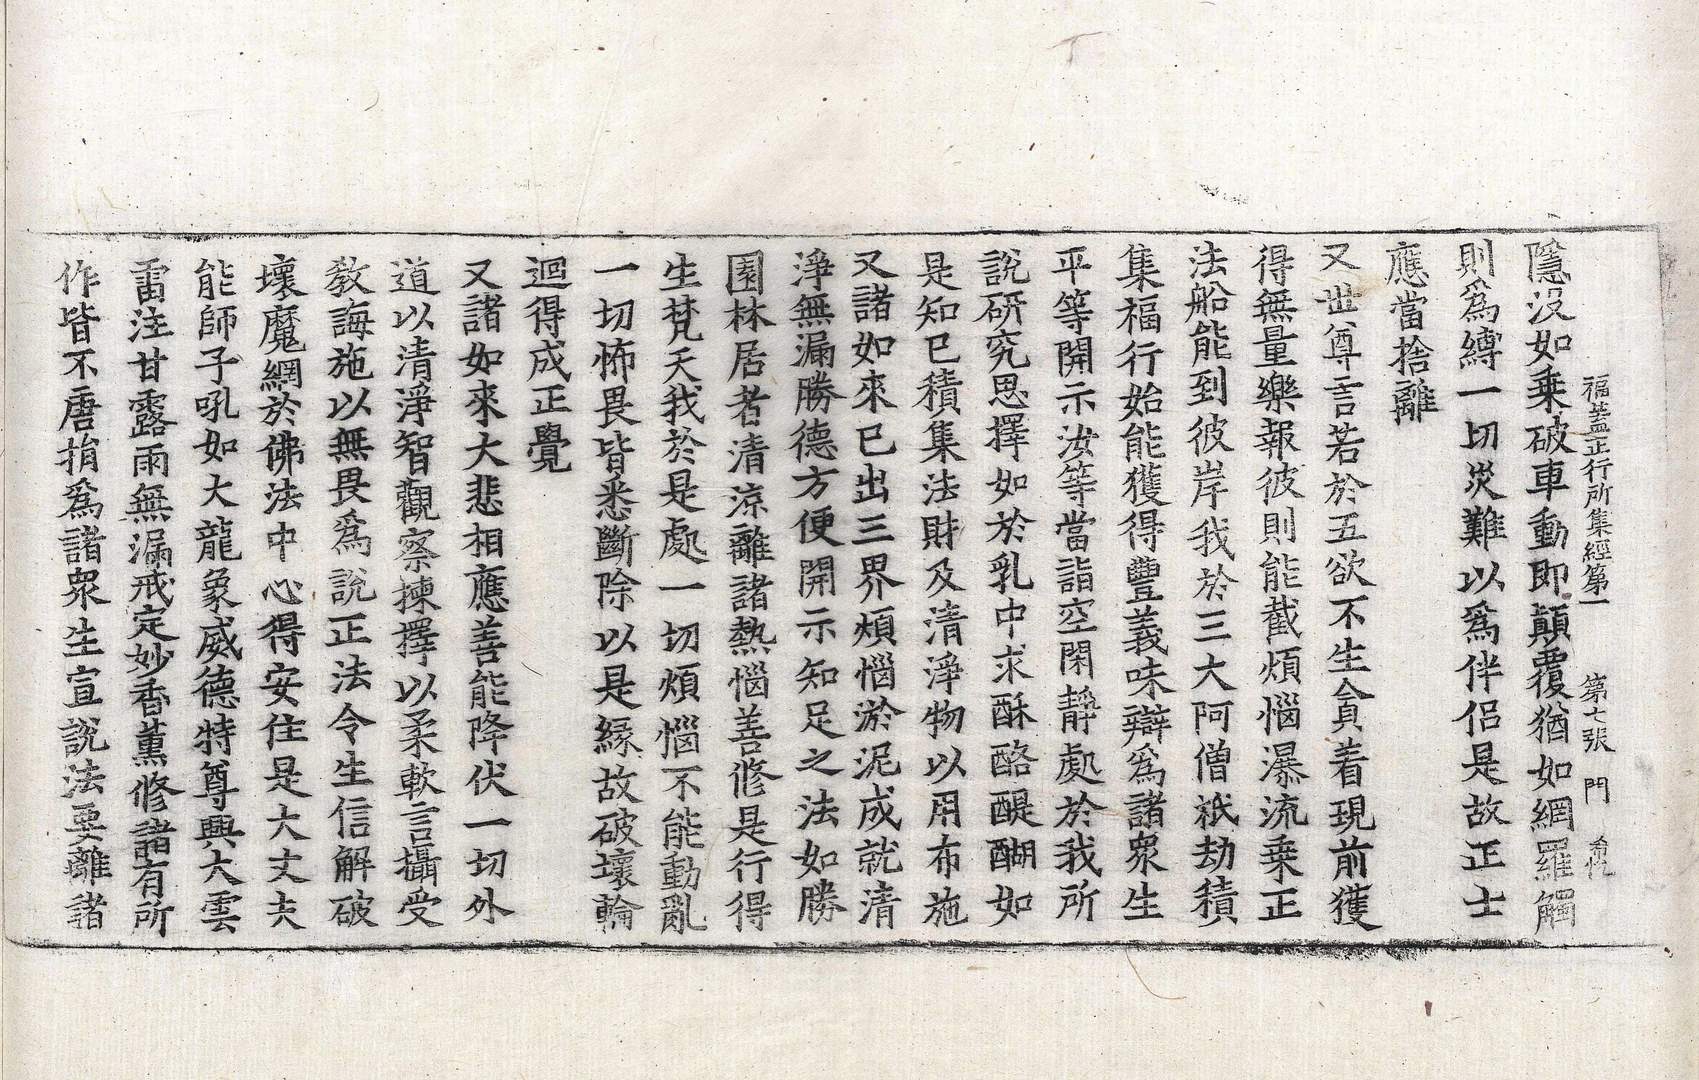 福蓋正行所集經第一　第七張　門
隱沒如乗破車動即顛覆猶如網羅觸
則爲縛一切災難以爲伴侶是故正士
應當捨離
又世尊言若於五欲不生貪着現前獲
得無量樂報彼則能截煩惱瀑流乗正
法船能到彼岸我於三大阿僧祇劫積
集福行始能獲得豐義味辯爲諸衆生
平等開示汝等當詣空閑靜處於我所
說研究思擇如於乳中求酥酪醍醐如
是知已積集法財及清淨物以用布施
又諸如來已出三界煩惱淤泥成就清
淨無漏勝德方便開示知足之法如勝
園林居者清涼離諸熱惱善修是行得
生梵天我於是處一切煩惱不能動亂
一切怖畏皆悉斷除以是緣故破壞輪
迴得成正覺
又諸如來大悲相應善能降伏一切外
道以清淨智觀察揀擇以柔軟言攝受
教誨施以無畏爲說正法令生信解破
壞魔網於佛法中心得安住是大丈夫
能師子吼如大龍象威德特尊興大雲
雷注甘露雨無漏戒定妙香薰修諸有所
作皆不唐捐爲諸衆生宣說法要離諸